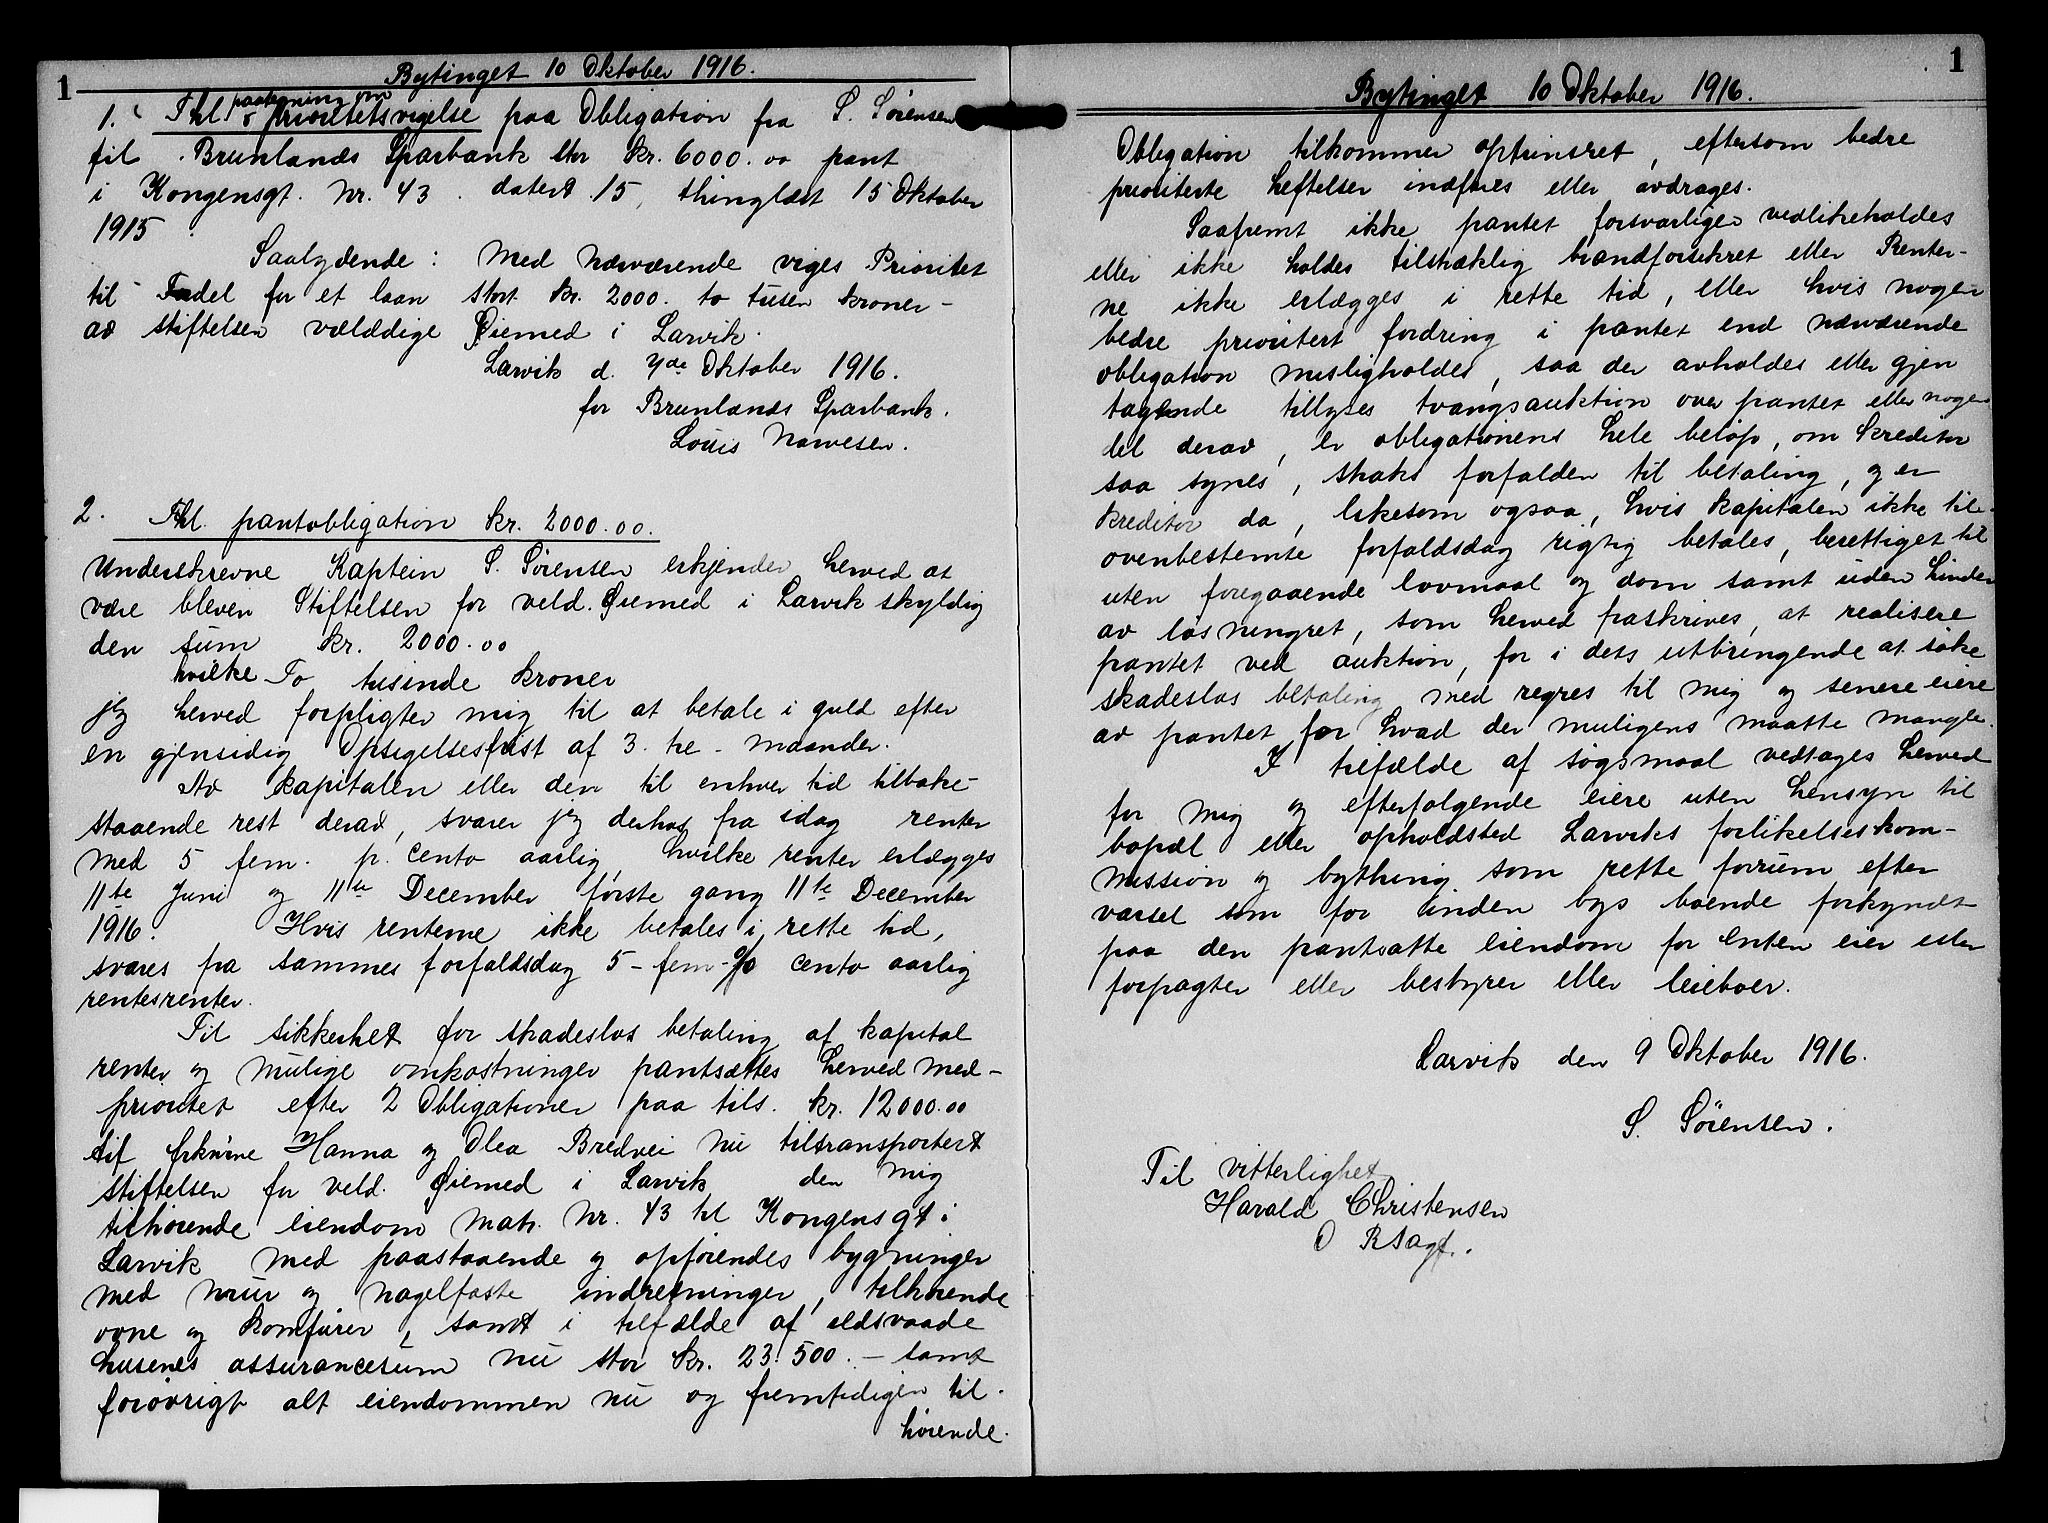 1
Bytinget 10 Oktober 1916.
paategning om
1. Thl prioritetsvigelse paa Obligation fra S. Sörensen
til Brunlands Sparbank stor kr. 6000.00 pant
i Kongensgt. Nr. 43. datert 15, thinglæst 15 Oktober
1915
Saalydende: Med Nærværende viges Prioritet
til Fordel for et laan stort kr. 2000. to tusen kroner -
av stiftelsen vældædige Øiemed i Larvik.
Larvik d. 7de Oktober 1916.
for Brunlands Sparbank.
Louis Narvesen.
2. Thl. pantobligation kr. 2000.00.
Underskrevne Kaptein S. Sörensen erkjender herved at
være bleven Stiftelsen for veld. Øiemed i Larvik skyldig
den sum kr. 2000.00
hvilke To tusinde kroner
jeg herved forpligter mig til at betale i guld efter
en gjensidig Opsigelsesfrist af 3. tre - maaneder.
Av kapitalen eller den til enhver tid tilbake-
staaende rest derav, svarer jeg derhos fra idag renter
med 5 fem. p. cento aarlig, hvilke renter erlægges
11te Juni og 11te December förste gang 11te December
1916. Hvis renterne ikke betales i rette tid,
svares fra sammes forfaldsdag 5 - fem - % cento aarlig
rentesrenter.
Til sikkerhet for skadeslös betaling af kapital
renter og mulige omkostninger pantsættes herved med -
prioritet efter 2 Obligationer paa tils. kr. 12000.00
til frknene Hanna og Olea Bredvei nu tiltransportert
stiftelsen for veld. Øiemed i Larvik den mig
tilhörende eiendom matr. Nr. 43 til Kongensgt i
Larvik med paastaaende og opförendes bygninger
med mur og nagelfaste indretninger, tilhörende
ovne og komfurer, samt i tilfælde af ildsvaade
husenes assurancesum nu stor kr. 23.500. - samt
forövrigt alt eiendommen nu og fremtidigen til-
hörende.
1
Bytinget 10 Oktober 1916.
Obligation tilkommer optrinsret, eftersom bedre
prioriterte heftelser indfries eller avdrages.
Saafremt ikke pantet forsvarligen vedlikeholdes
eller ikke holdes tilstrækkelig brandforsikret eller Renter-
ne ikke erlægges i rette tid, eller hvis nogen
bedre prioritert fordring i pantet end nærværende
obligation misligholdes, saa der avholdes eller gjen
tagende tillyses tvangsauktion over pantet eller nogen
del derav, er obligationens hele belöp, om kreditor
saa synes, straks forfalden til betaling, og er
kreditor da, likesom ogsaa, hvis kapitalen ikke til
ovenbestemte forfaldsdag rigtig betales, berettiget til
uten foregaaende lovmaal og dom samt uden hinder
av lösningret, som herved fraskrives, at realisere
pantet ved auktion, for i dets utbringende at söke
skadeslös betaling med regres til mig og senere eiere
av pantet for hvad der muligens maatte mangle.
I tilfælde af sögsmaal vedtages herved
for mig og efterfölgende eiere uten hensyn til
bopæl eller opholdsted Larviks forlikelseskom-
mission og bything som rette forrum efter
varsel som for inden bys boende forkyndt
paa den pantsatte eiendom for enten eier eller
forpagter eller bestyrer eller leieboer.
Larvik den 9 Oktober 1916.
S. Sörensen.
Til vitterlighet
Harald Christensen
O Rsagf.